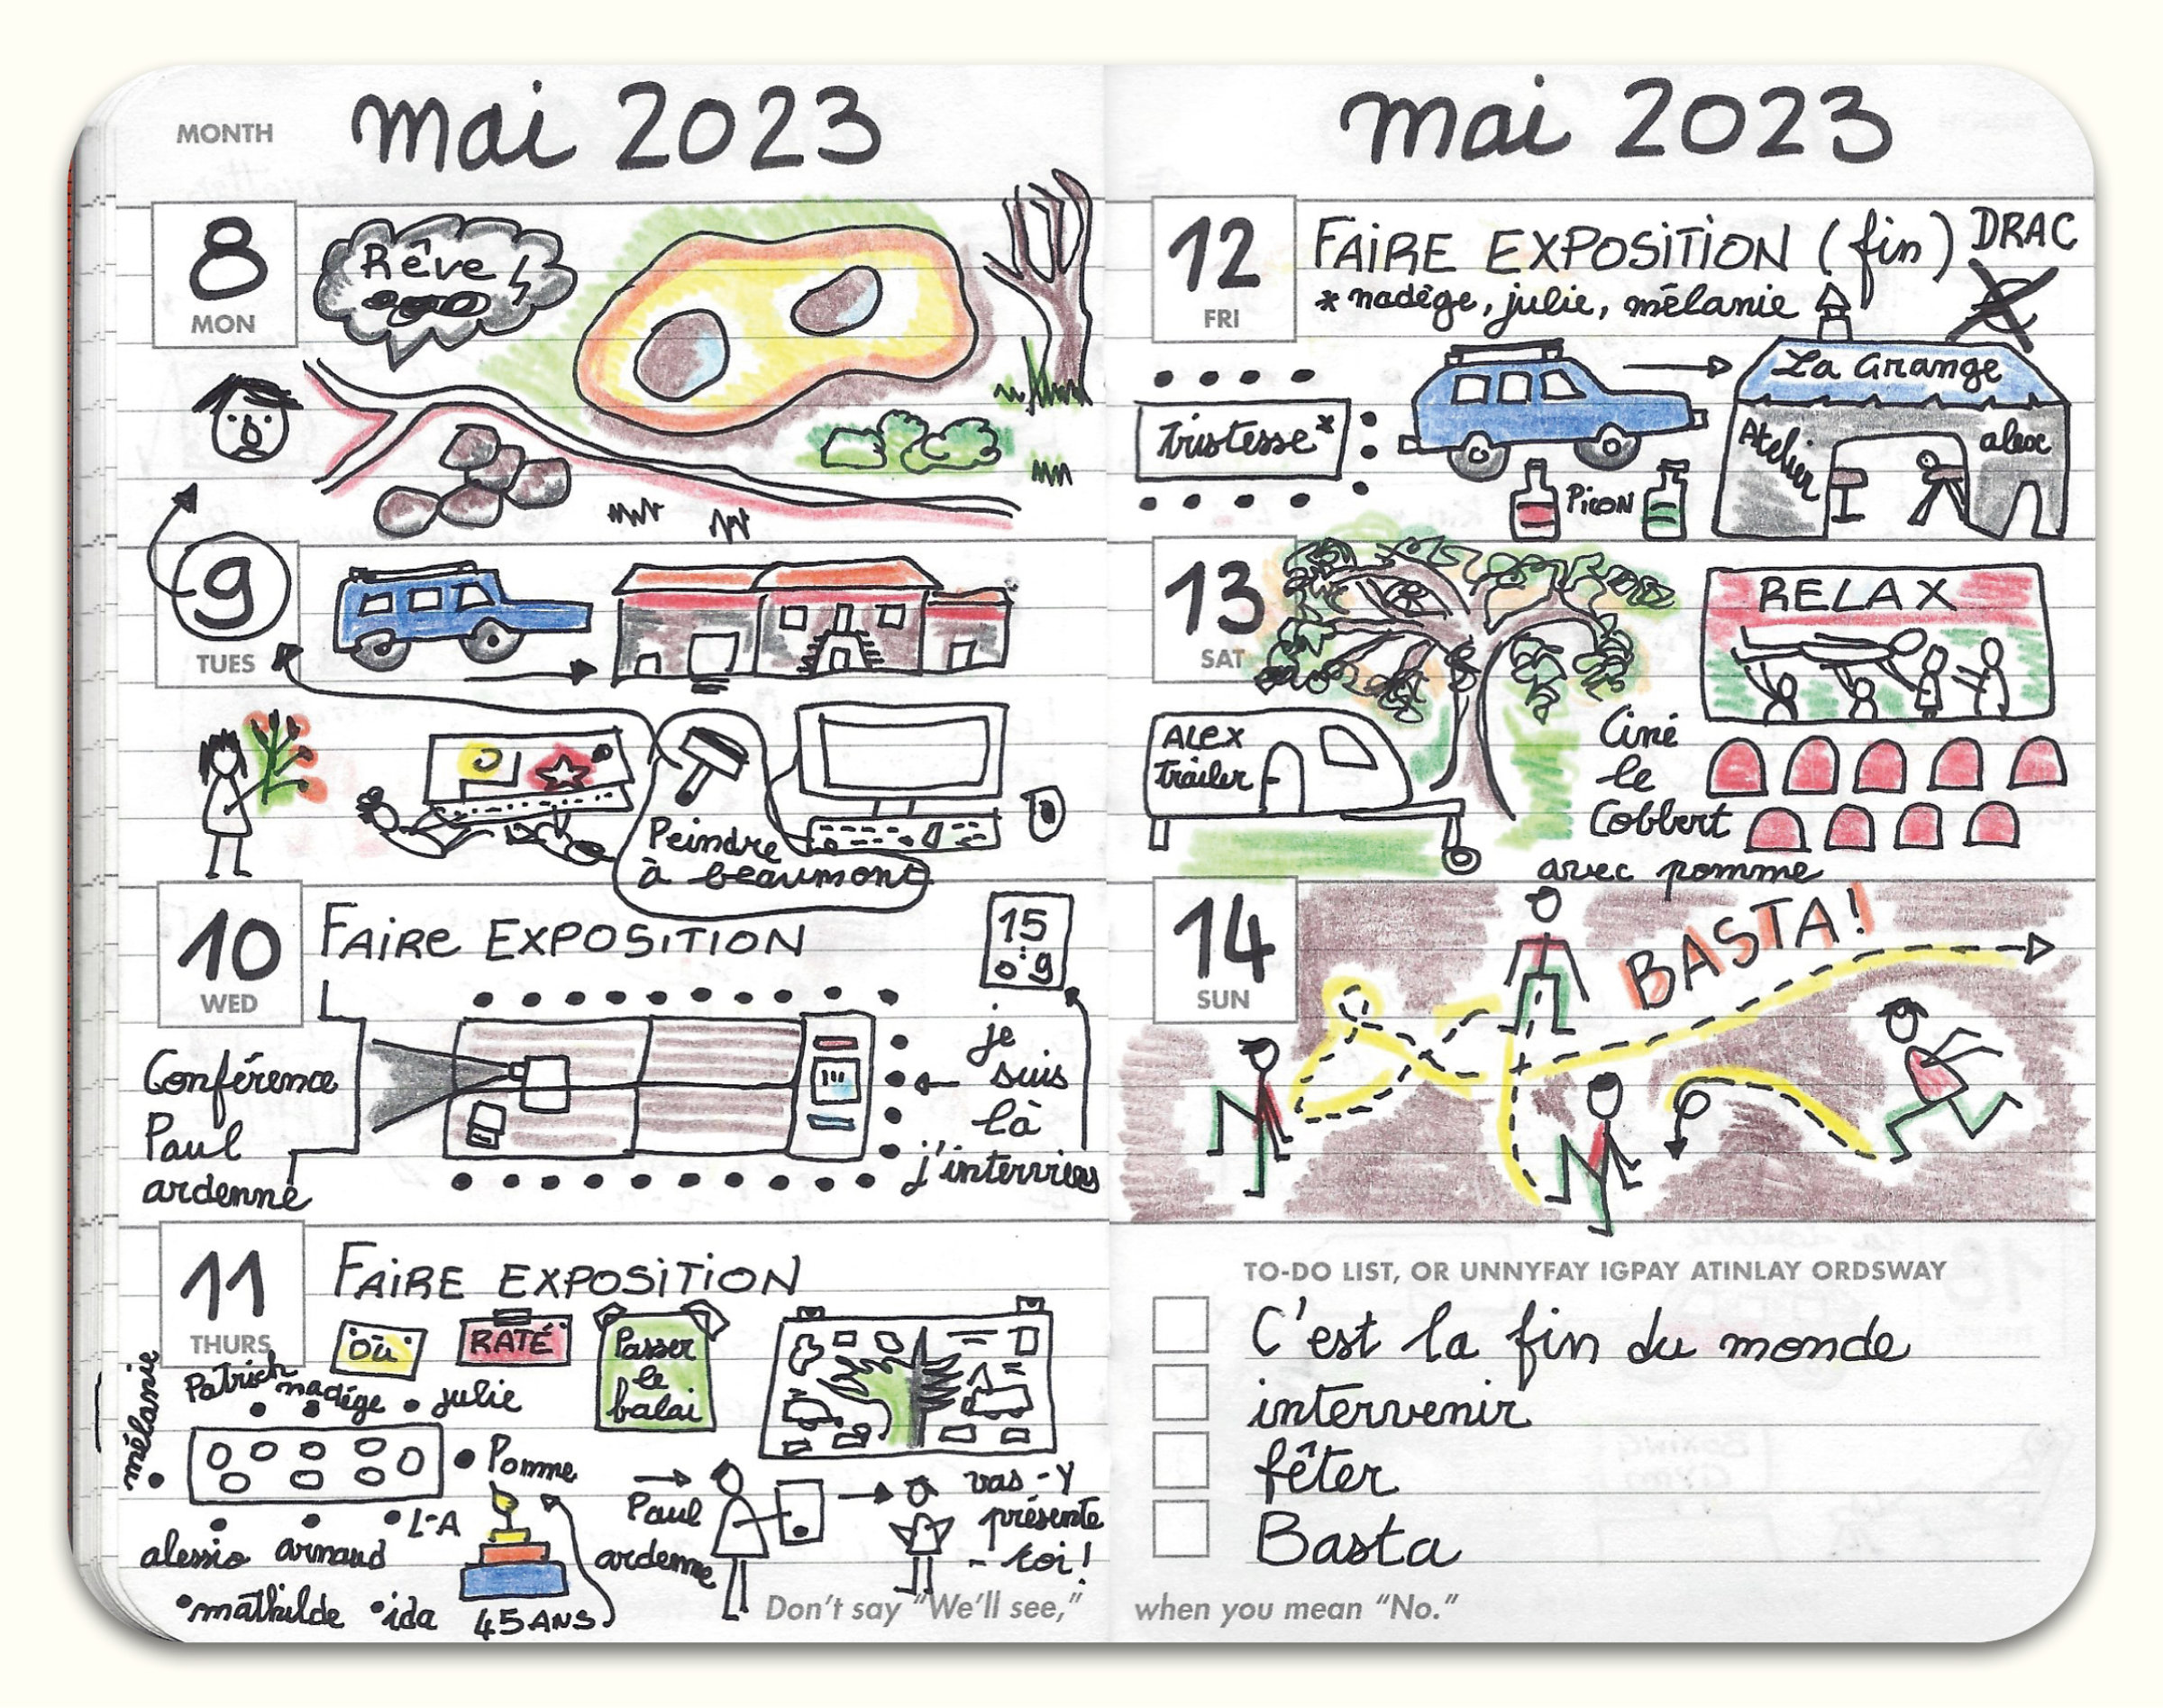 MONTH mai 2023
8
MON
Rêve
9
TUES
Peindre
à beaumont
10
WED
FAIRE EXPOSITION
15
0:9
Conférence
Paul
ardenne
je
suis
là
j'interviens
11
THURS
FAIRE EXPOSITION
où
RATÉ
Passer
le
balai
mélanie
Patrick
nadège
julie
Pomme
L-A
alessio arnaud
mathilde ida
45 ANS
Paul
ardenne
vas-y
présente
-toi!
Don't say "We'll see,"
mai 2023
12
FRI
FAIRE EXPOSITION (fin) DRAC
*nadège, julie, mélanie
tristesse*
Picon
La Grange
Atelier
alex
13
SAT
RELAX
ALEX
trailer
Ciné
le
Colbert
avec pomme
14
SUN
BASTA!
TO-DO LIST, OR UNNYFAY IGPAY ATINLAY ORDSWAY
C'est la fin du monde
intervenir
fêter
Basta
when you mean "No."